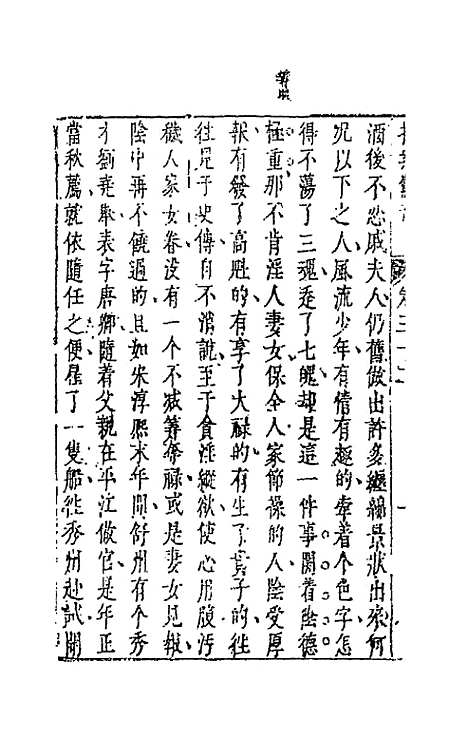 卷三十二 一
酒後不戚夫人仍舊做出許多纏綿景狀出來何
況以下之人風流少年有情有趣的牽着个色字怎
得不蕩了三魂走了七魄却是這一件事関着陰德
極重那不肯淫人妻女保全人家節操的人陰受厚
報有發了高魁的有享了大祿的有生了貴子的徃
徃見于史傳自不消說至于貪淫縱欲使心用腹污
穢人家女眷沒有一个不减筭奪祿或是妻女見報
陰中再不饒過的且如宋淳熙末年間舒州有个秀
才劉堯舉表字唐卿隨着父親在平江做官是年正
當秋薦就依隨任之便雇了一隻船徃秀州赴試開